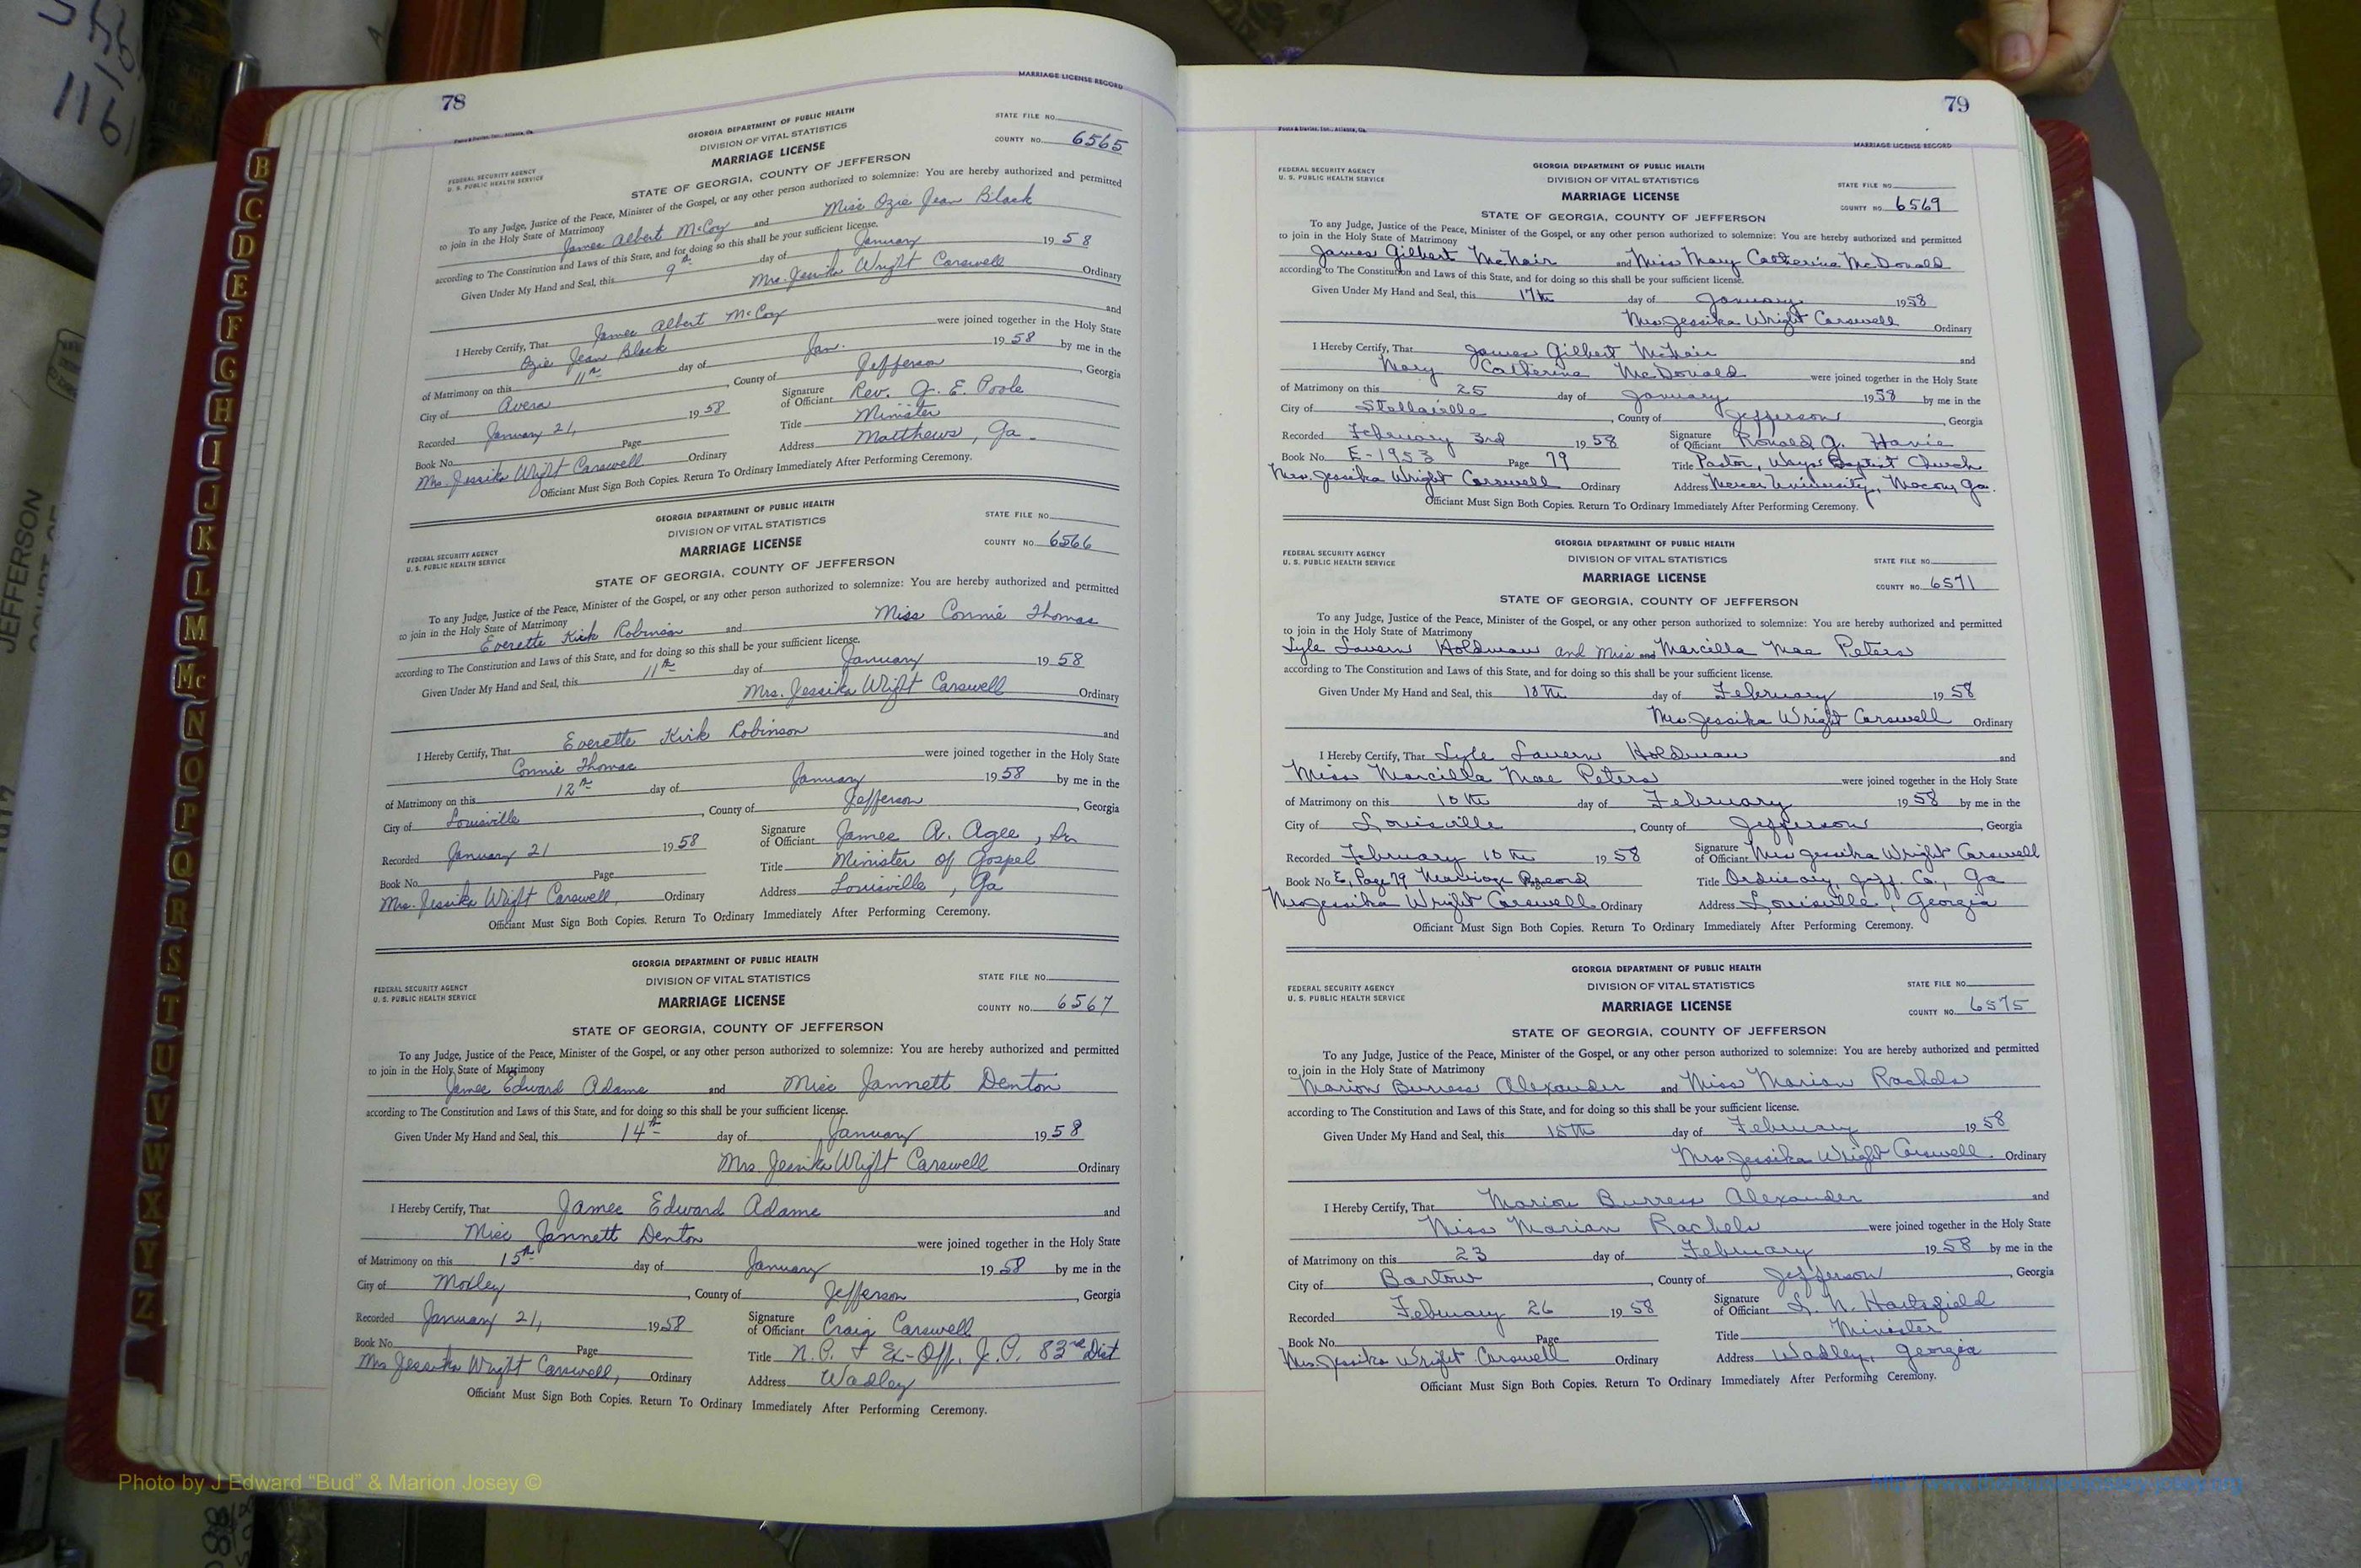 78
MARRIAGE LICENSE RECORD
GEORGIA DEPARTMENT OF PUBLIC HEALTH
STATE FILE NO.
DIVISION OF VITAL STATISTICS
COUNTY NO. 6565
FEDERAL SECURITY AGENCY
U. S. PUBLIC HEALTH SERVICE
MARRIAGE LICENSE
STATE OF GEORGIA, COUNTY OF JEFFERSON
To any Judge, Justice of the Peace, Minister of the Gospel, or any other person authorized to solemnize: You are hereby authorized and permitted
to join in the Holy State of Matrimony
James Albert McCoy and Miss Ozie Jean Black
according to The Constitution and Laws of this State, and for doing so this shall be your sufficient license.
Given Under My Hand and Seal, this 9th day of January 1958
Mrs. Jessika Wright Carswell Ordinary
I Hereby Certify, That James Albert McCoy and
Ozie Jean Black were joined together in the Holy State
of Matrimony on this 11th day of Jan. 1958 by me in the
City of Avera, County of Jefferson, Georgia
Recorded January 21, 1958 Signature of Officiant Rev. G. E. Poole
Book No. Page Title Minister
Mrs. Jessika Wright Carswell Ordinary Address Matthews, Ga.
Officiant Must Sign Both Copies. Return To Ordinary Immediately After Performing Ceremony.
GEORGIA DEPARTMENT OF PUBLIC HEALTH
STATE FILE NO.
DIVISION OF VITAL STATISTICS
COUNTY NO. 6566
FEDERAL SECURITY AGENCY
U. S. PUBLIC HEALTH SERVICE
MARRIAGE LICENSE
STATE OF GEORGIA, COUNTY OF JEFFERSON
To any Judge, Justice of the Peace, Minister of the Gospel, or any other person authorized to solemnize: You are hereby authorized and permitted
to join in the Holy State of Matrimony
Everette Kirk Robinson and Miss Connie Thomas
according to The Constitution and Laws of this State, and for doing so this shall be your sufficient license.
Given Under My Hand and Seal, this 11th day of January 1958
Mrs. Jessika Wright Carswell Ordinary
I Hereby Certify, That Everette Kirk Robinson and
Connie Thomas were joined together in the Holy State
of Matrimony on this 12th day of January 1958 by me in the
City of Louisville, County of Jefferson, Georgia
Recorded January 21 1958 Signature of Officiant James A. Agee, Sr.
Book No. Page Title Minister of Gospel
Mrs. Jessika Wright Carswell, Ordinary Address Louisville, Ga
Officiant Must Sign Both Copies. Return To Ordinary Immediately After Performing Ceremony.
GEORGIA DEPARTMENT OF PUBLIC HEALTH
STATE FILE NO.
DIVISION OF VITAL STATISTICS
COUNTY NO. 6567
FEDERAL SECURITY AGENCY
U. S. PUBLIC HEALTH SERVICE
MARRIAGE LICENSE
STATE OF GEORGIA, COUNTY OF JEFFERSON
To any Judge, Justice of the Peace, Minister of the Gospel, or any other person authorized to solemnize: You are hereby authorized and permitted
to join in the Holy State of Matrimony
James Edward Adams and Miss Jannett Denton
according to The Constitution and Laws of this State, and for doing so this shall be your sufficient license.
Given Under My Hand and Seal, this 14th day of January 1958
Mrs. Jessika Wright Carswell Ordinary
I Hereby Certify, That James Edward Adams and
Miss Jannett Denton were joined together in the Holy State
of Matrimony on this 15th day of January 1958 by me in the
City of Moxley, County of Jefferson, Georgia
Recorded January 21, 1958 Signature of Officiant Craig Carswell
Book No. Page Title N. P. & Ex-Off. J. P. 83rd Dist
Mrs Jessika Wright Carswell, Ordinary Address Wadley
Officiant Must Sign Both Copies. Return To Ordinary Immediately After Performing Ceremony.
79
MARRIAGE LICENSE RECORD
GEORGIA DEPARTMENT OF PUBLIC HEALTH
DIVISION OF VITAL STATISTICS
STATE FILE NO.
FEDERAL SECURITY AGENCY
U. S. PUBLIC HEALTH SERVICE
MARRIAGE LICENSE
COUNTY NO. 6569
STATE OF GEORGIA, COUNTY OF JEFFERSON
To any Judge, Justice of the Peace, Minister of the Gospel, or any other person authorized to solemnize: You are hereby authorized and permitted
to join in the Holy State of Matrimony
James Gilbert McNair and Miss Mary Catherine McDonald
according to The Constitution and Laws of this State, and for doing so this shall be your sufficient license.
Given Under My Hand and Seal, this 17th day of January 1958
Mrs Jessika Wright Carswell Ordinary
I Hereby Certify, That James Gilbert McNair and
Mary Catherine McDonald were joined together in the Holy State
of Matrimony on this 25 day of January 1958 by me in the
City of Stellaville, County of Jefferson, Georgia
Recorded February 3rd 1958 Signature of Officiant Ronald J. Hanie
Book No. E-1953 Page 79 Title Pastor, Ways Baptist Church
Mrs. Jessika Wright Carswell Ordinary Address Mercer University, Macon, Ga.
Officiant Must Sign Both Copies. Return To Ordinary Immediately After Performing Ceremony.
GEORGIA DEPARTMENT OF PUBLIC HEALTH
DIVISION OF VITAL STATISTICS
STATE FILE NO.
FEDERAL SECURITY AGENCY
U. S. PUBLIC HEALTH SERVICE
MARRIAGE LICENSE
COUNTY NO. 6571
STATE OF GEORGIA, COUNTY OF JEFFERSON
To any Judge, Justice of the Peace, Minister of the Gospel, or any other person authorized to solemnize: You are hereby authorized and permitted
to join in the Holy State of Matrimony
Lyle Lavern Holdman and Miss and Marcilla Mae Peters
according to The Constitution and Laws of this State, and for doing so this shall be your sufficient license.
Given Under My Hand and Seal, this 10th day of February 1958
Mrs Jessika Wright Carswell Ordinary
I Hereby Certify, That Lyle Lavern Holdman and
Miss Marcilla Mae Peters were joined together in the Holy State
of Matrimony on this 10th day of February 1958 by me in the
City of Louisville, County of Jefferson, Georgia
Recorded February 10th 1958 Signature of Officiant Mrs Jessika Wright Carswell
Book No. E, Page 79 Marriage Record Title Ordinary, Jeff. Co., Ga
Mrs Jessika Wright Carswell Ordinary Address Louisville, Georgia
Officiant Must Sign Both Copies. Return To Ordinary Immediately After Performing Ceremony.
GEORGIA DEPARTMENT OF PUBLIC HEALTH
DIVISION OF VITAL STATISTICS
STATE FILE NO.
FEDERAL SECURITY AGENCY
U. S. PUBLIC HEALTH SERVICE
MARRIAGE LICENSE
COUNTY NO. 6575
STATE OF GEORGIA, COUNTY OF JEFFERSON
To any Judge, Justice of the Peace, Minister of the Gospel, or any other person authorized to solemnize: You are hereby authorized and permitted
to join in the Holy State of Matrimony
Marion Burress Alexander and Miss Marian Rachels
according to The Constitution and Laws of this State, and for doing so this shall be your sufficient license.
Given Under My Hand and Seal, this 15th day of February 1958
Mrs Jessika Wright Carswell Ordinary
I Hereby Certify, That Marion Burress Alexander and
Miss Marian Rachels were joined together in the Holy State
of Matrimony on this 23 day of February 1958 by me in the
City of Bartow, County of Jefferson, Georgia
Recorded February 26 1958 Signature of Officiant L. N. Hartsfield
Book No. Page Title Minister
Mrs. Jessika Wright Carswell Ordinary Address Wadley, Georgia
Officiant Must Sign Both Copies. Return To Ordinary Immediately After Performing Ceremony.
B
C
D
E
F
G
H
I
J
K
L
M
Mc
N
O
P
Q
R
S
T
U
V
W
X
Y
Z
JEFFERSON
Photo by J Edward “Bud” & Marion Josey ©